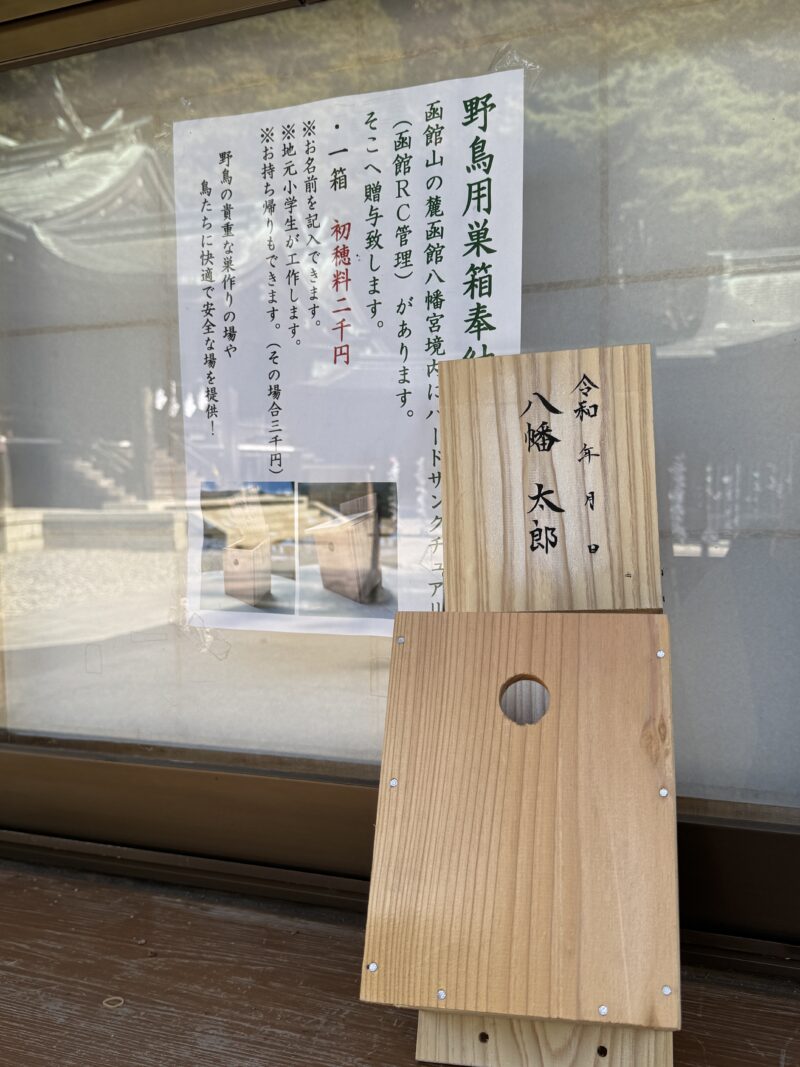 野鳥用巣箱奉納
函館山の麓函館八幡宮境内にバードサンクチュアリ
（函館ＲＣ管理）があります。
そこへ贈与致します。
・一箱　初穂料二千円
※お名前を記入できます。
※地元小学生が工作します。
※お持ち帰りもできます。（その場合三千円）
野鳥の貴重な巣作りの場や
鳥たちに快適で安全な場を提供！
令和　年　月　日
八幡　太郎